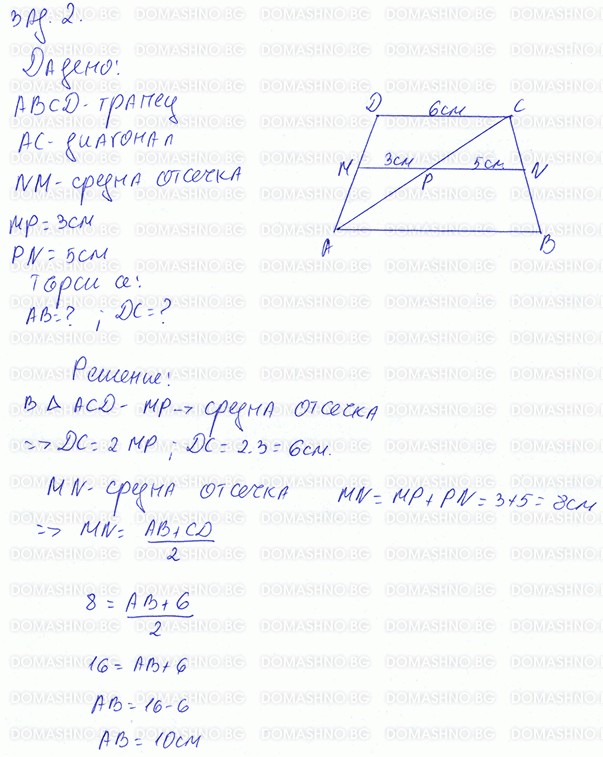 Зад. 2.
Дадено:
ABCD - трапец
AC - диагонал
NM - средна отсечка
MP = 3см
PN = 5см
Търси се:
AB = ? ; DC = ?
D 6см C
M 3см P 5см N
A B
Решение:
В Δ ACD - MP → средна отсечка
=> DC = 2 MP ; DC = 2.3 = 6см.
MN - средна отсечка MN = MP + PN = 3+5 = 8см
=> MN = AB + CD / 2
8 = AB + 6 / 2
16 = AB + 6
AB = 16 - 6
AB = 10см
DOMASHNO.BG